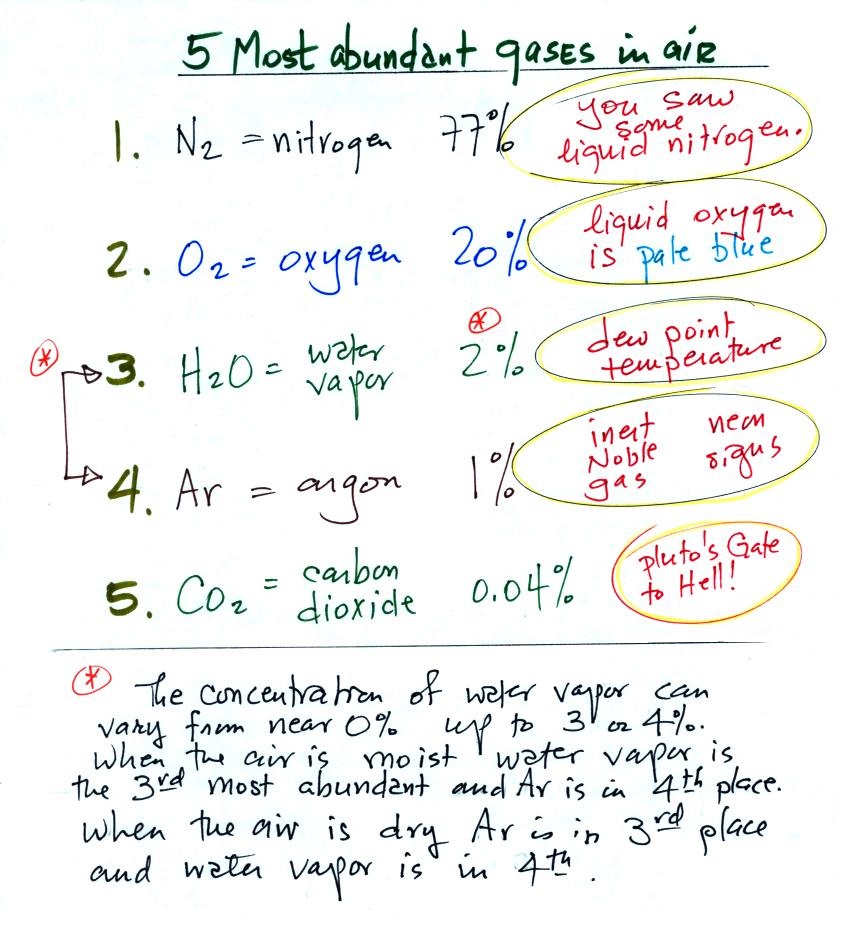 5 Most abundant gases in air
1. N2 = nitrogen 77%
you saw
some
liquid nitrogen.
2. O2 = oxygen 20%
liquid oxygen
is pale blue
* 3. H2O = water
vapor
* 2%
dew point
temperature
4. Ar = argon 1%
inert neon
Noble signs
gas
5. CO2 = carbon
dioxide
0.04%
pluto's Gate
to Hell!
* The concentration of water vapor can
vary from near 0% up to 3 or 4%.
When the air is moist water vapor is
the 3rd most abundant and Ar is in 4th place.
When the air is dry Ar is in 3rd place
and water vapor is in 4th.